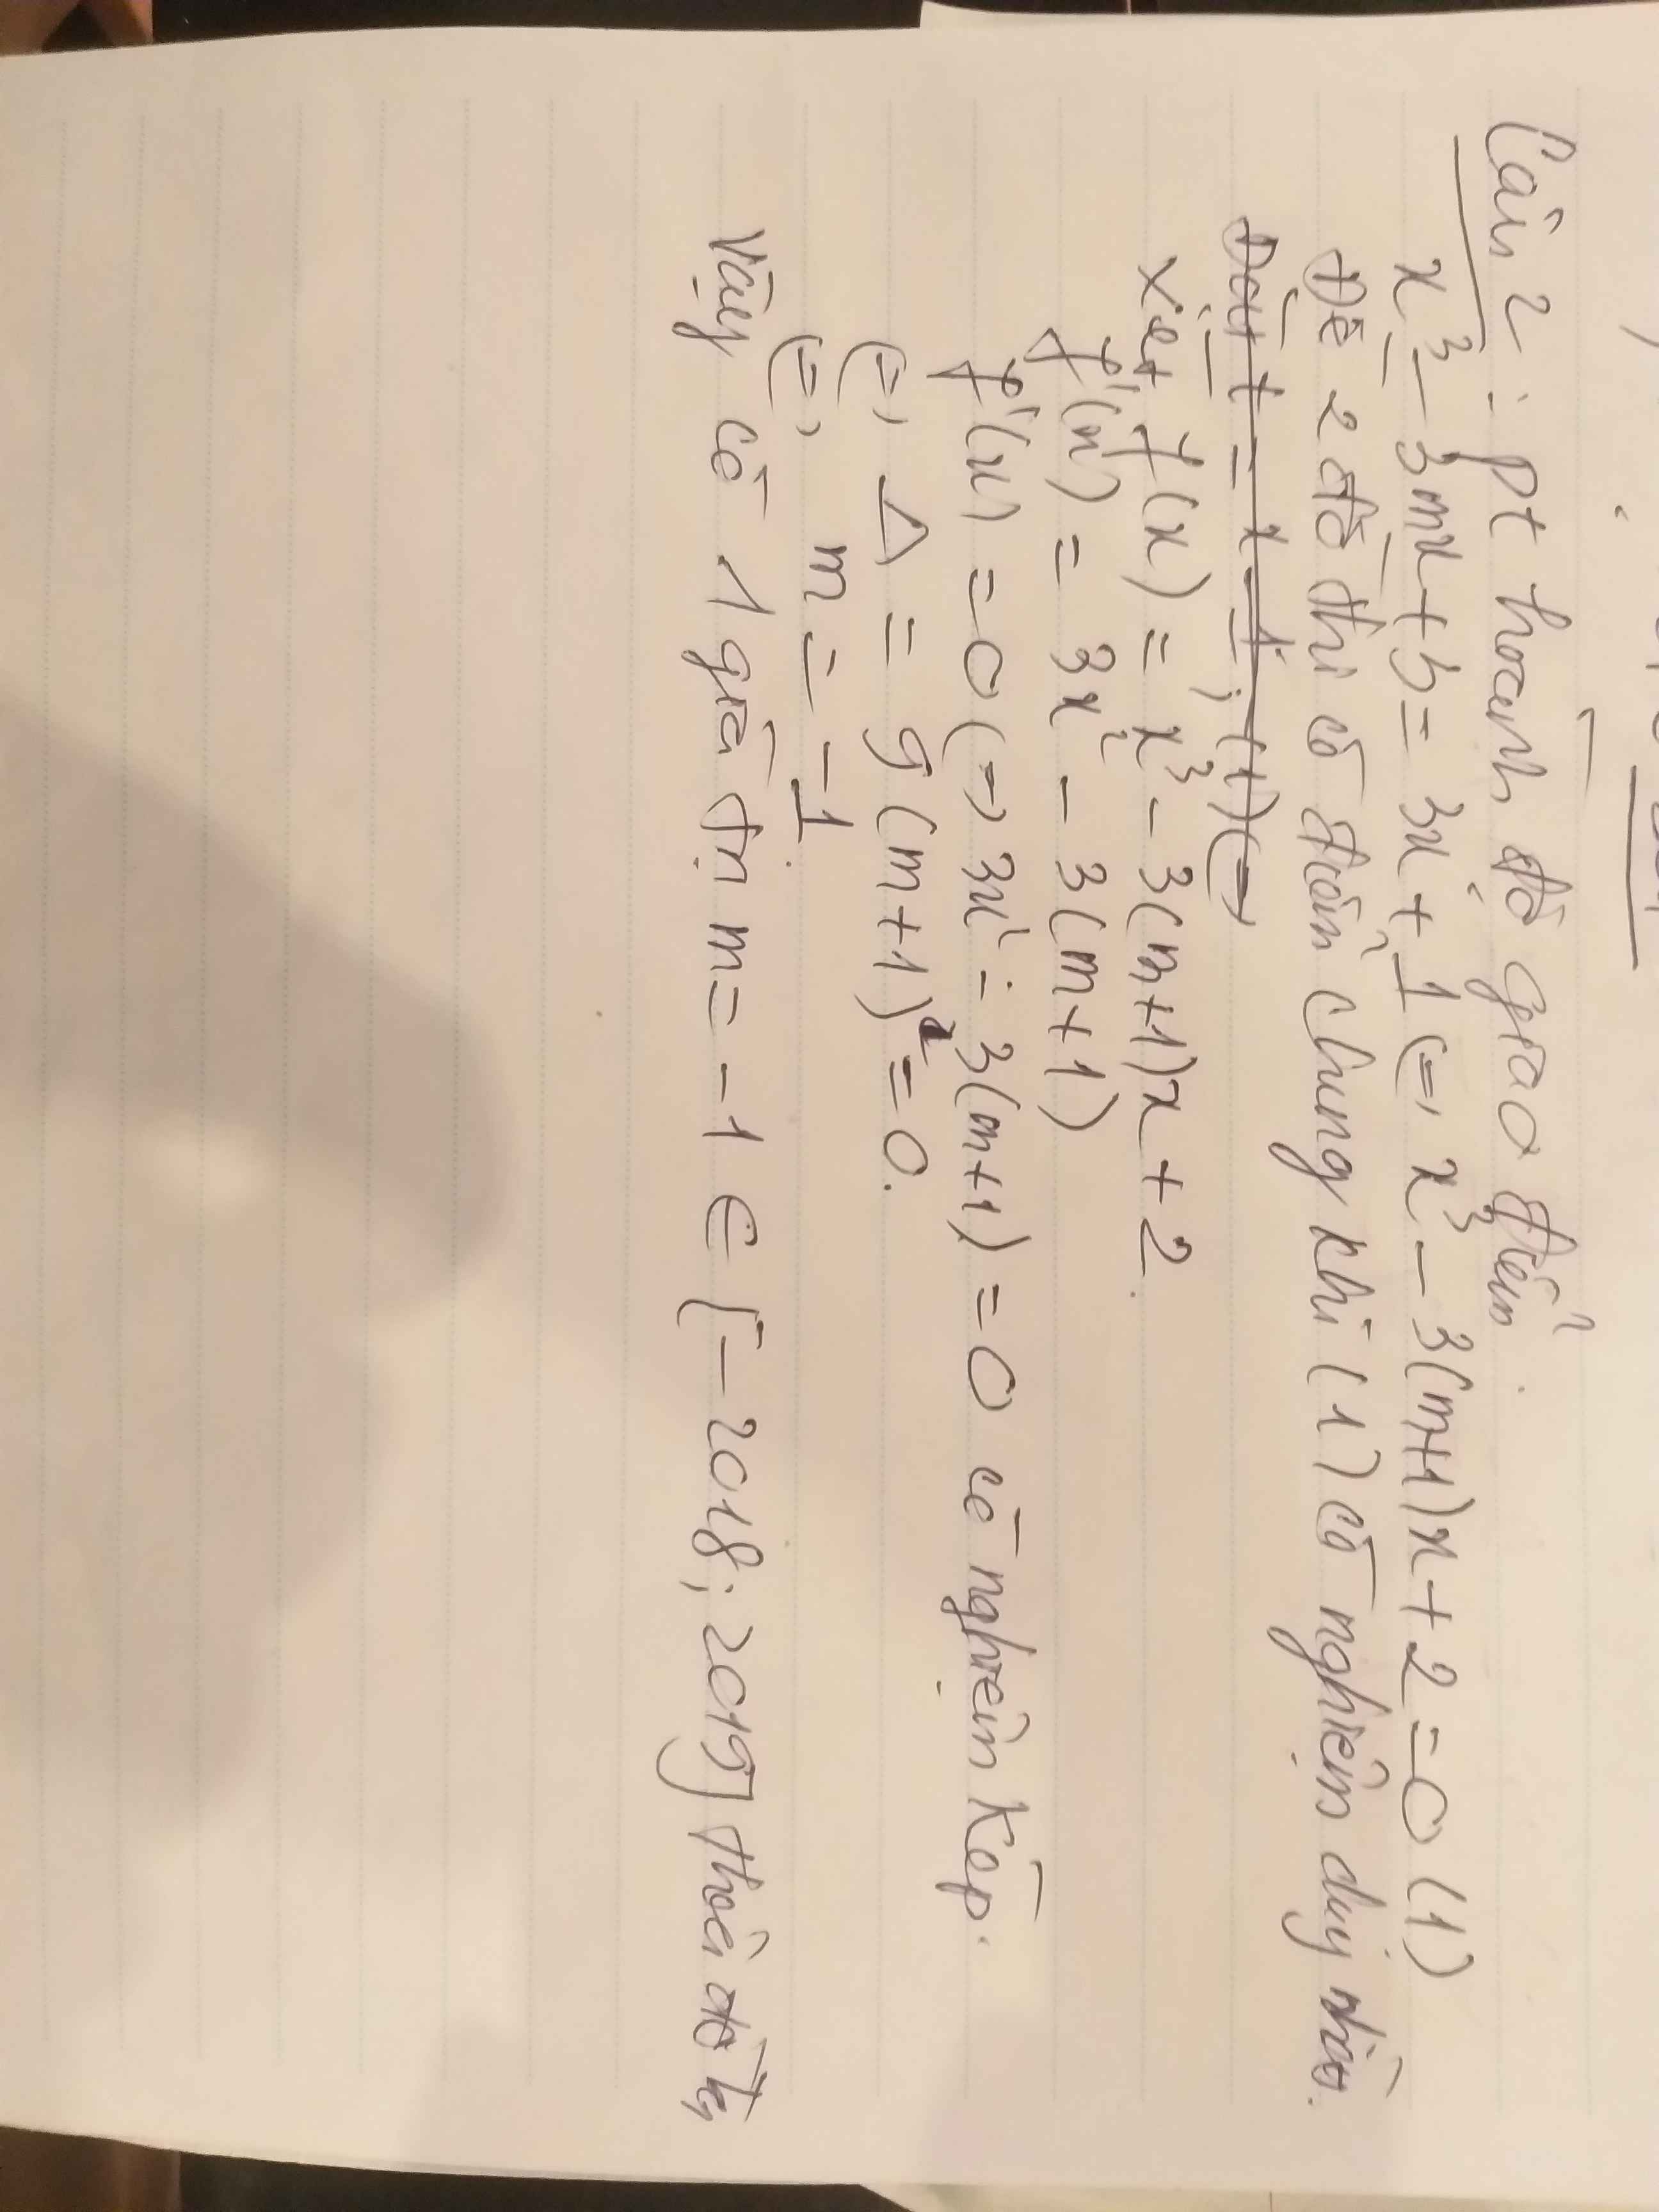 Câu 2 : pt hoành độ giao điểm.
x³ - 3mx + 3 = 3x + 1 (=) x³ - 3(m+1)x + 2 = 0 (1)
Để 2 đồ thị có điểm chung khi (1) có nghiệm duy nhất.
Đặt t = x - 1; (1) (=)
Xét f(x) = x³ - 3(m+1)x + 2.
f'(x) = 3x² - 3(m+1)
f'(x) = 0 (=) 3x² - 3(m+1) = 0 có nghiệm kép.
(=) Δ = 9(m+1)² = 0.
(=) m = -1.
Vậy có 1 giá trị m = -1 ∈ [-2018; 2019] thoả